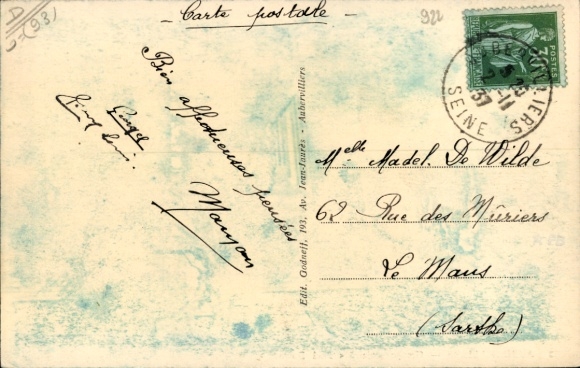 D
(93)
- Carte postale -
922
30c
POSTES
AUBERVILLIERS
37
SEINE
Bien affectueuses pensées
Edit. Godneff, 193, Av. Jean-Jaurès - Aubervilliers
Melle Madel. De Wilde
62 Rue des Mûriers
Le Mans
(Sarthe)